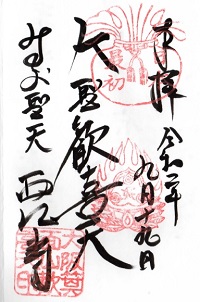 奉拝
令和 年
九月十九日
最初
大聖歡喜天
みのお聖天
西江寺